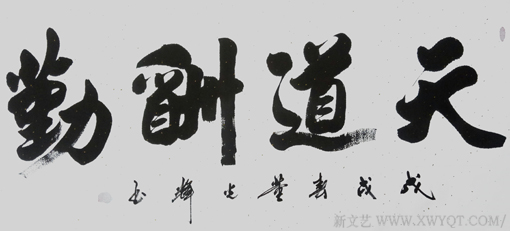 天道酬勤
戊戌春董光辉
新文艺 WWW.XWYQT.COM/